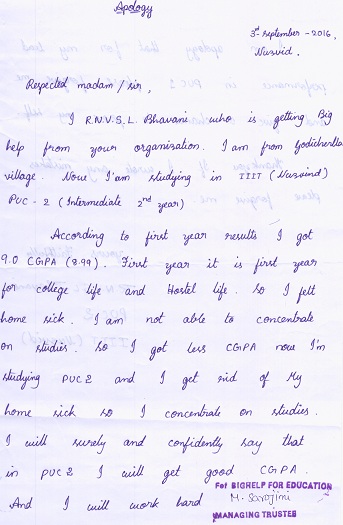 Apology
3rd september - 2016,
Nuzvid.
Respected madam / sir,
I R.N.V.S.L. Bhavani who is getting Big
help from your organization. I am from Godicherlla
village. Now I'am studying in IIIT (Nuzvind)
PUC - 2 (Intermediate 2nd year)
According to first year results I got
9.0 CGPA (8.99). First year it is first year
for college life and Hostel life. so I felt
home sick. I am not able to concentrate
on studies. so I got less CGPA now I'm
studying PUC 2 and I get rid of My
home sick so I concentrate on studies.
I will surely and confidently say that
in PUC 2 I will get good CGPA.
And I will work hard
For BIGHELP FOR EDUCATION
M. Sarojini
MANAGING TRUSTEE